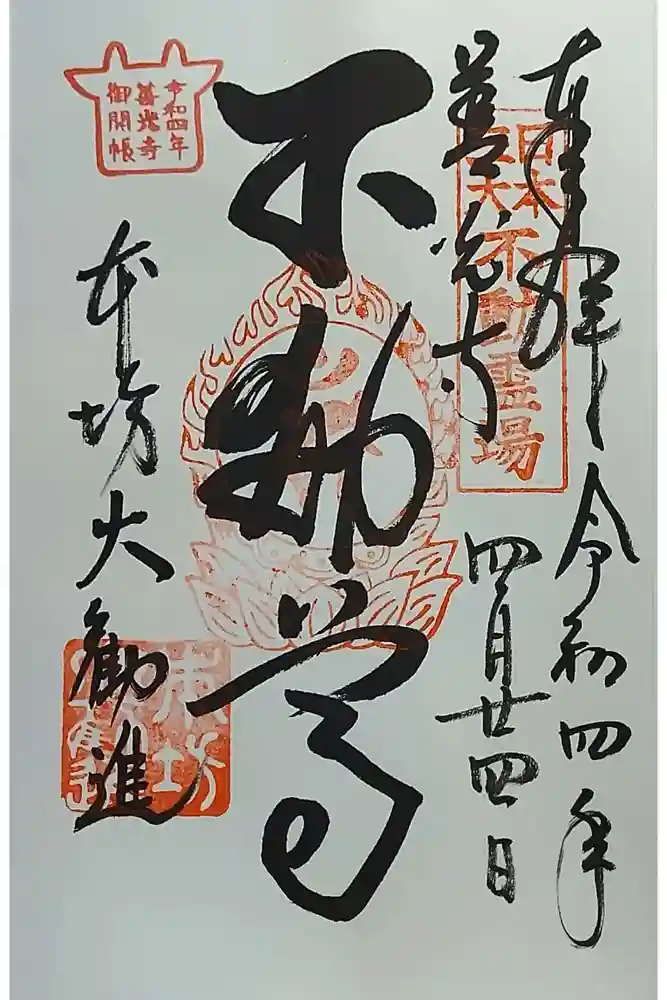 奉拝 令和四年
善光寺 四月廿四日
日本
三大
不動霊場
不動尊
令和四年
善光寺
御開帳
本坊大勧進
本坊